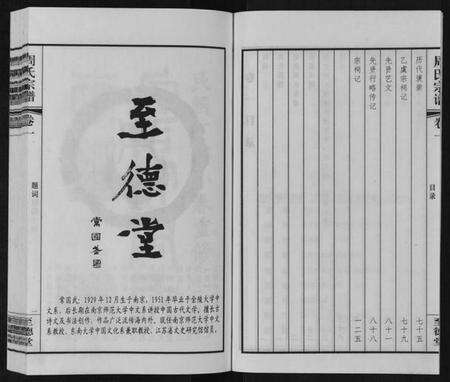 周氏宗谱
卷一
目录
至德堂
历代溪裳
乙虞宗祠记
先贤艺文
先贤行略传记
宗祠记
七十五
七十九
八十一
八十八
一二五
周氏宗谱
卷一
题词
至德堂
至德堂
常国武
常国武:1929年12月生于南京,1951年毕业于金陵大学中
文系。后长期在南京师范大学中文系讲授中国古代文学,擅长古
诗文及书法创作,作品广泛流传海内外。现任南京师范大学中文系
教授、东南大学中国文化系兼职教授、江苏省文史研究馆馆员。